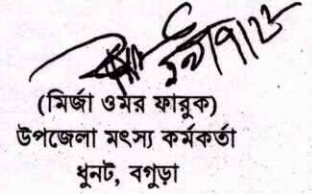 (মির্জা ওমর ফারুক)
উপজেলা মৎস্য কর্মকর্তা
ধুনট, বগুড়া